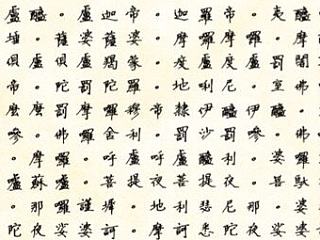 盧醯・盧迦帝・迦羅帝・夷醯
墟・薩婆薩婆・摩囉摩囉・摩
俱盧俱盧羯蒙・度盧度盧罰闍
帝・陀罰陀羅・地利尼・室佛
麼麼罰摩囉穆帝隸伊醯伊醯・
嘇・佛囉舍利・罰沙罰嘇・佛
・摩囉・呼盧呼盧醯利・娑囉
嚧蘇嚧・菩提夜菩提夜・菩馱
・那囉謹墀・地利瑟尼那・婆
陀夜娑婆訶・摩訶悉陀夜娑婆